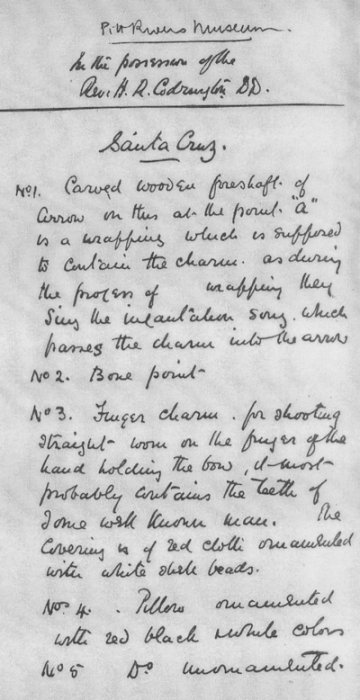 Pitt Rivers Museum.
In the possession of the
Rev. H. R. Codrington DD.
Santa Cruz.
No 1. Carved wooden foreshaft of
arrow on this at the point "a"
is a wrapping which is supposed
to contain the charm. as during
the process of wrapping they
sing the incantation song, which
passes the charm into the arrow
No 2. Bone point
No 3. Finger charm. for shooting
straight worn on the finger of the
hand holding the bow, it most
probably contains the teeth of
some well known man. The
covering is of red cloth ornamented
with white shell beads.
No. 4. Pillow ornamented
with red black & white colors
No 5 Do unornamented.